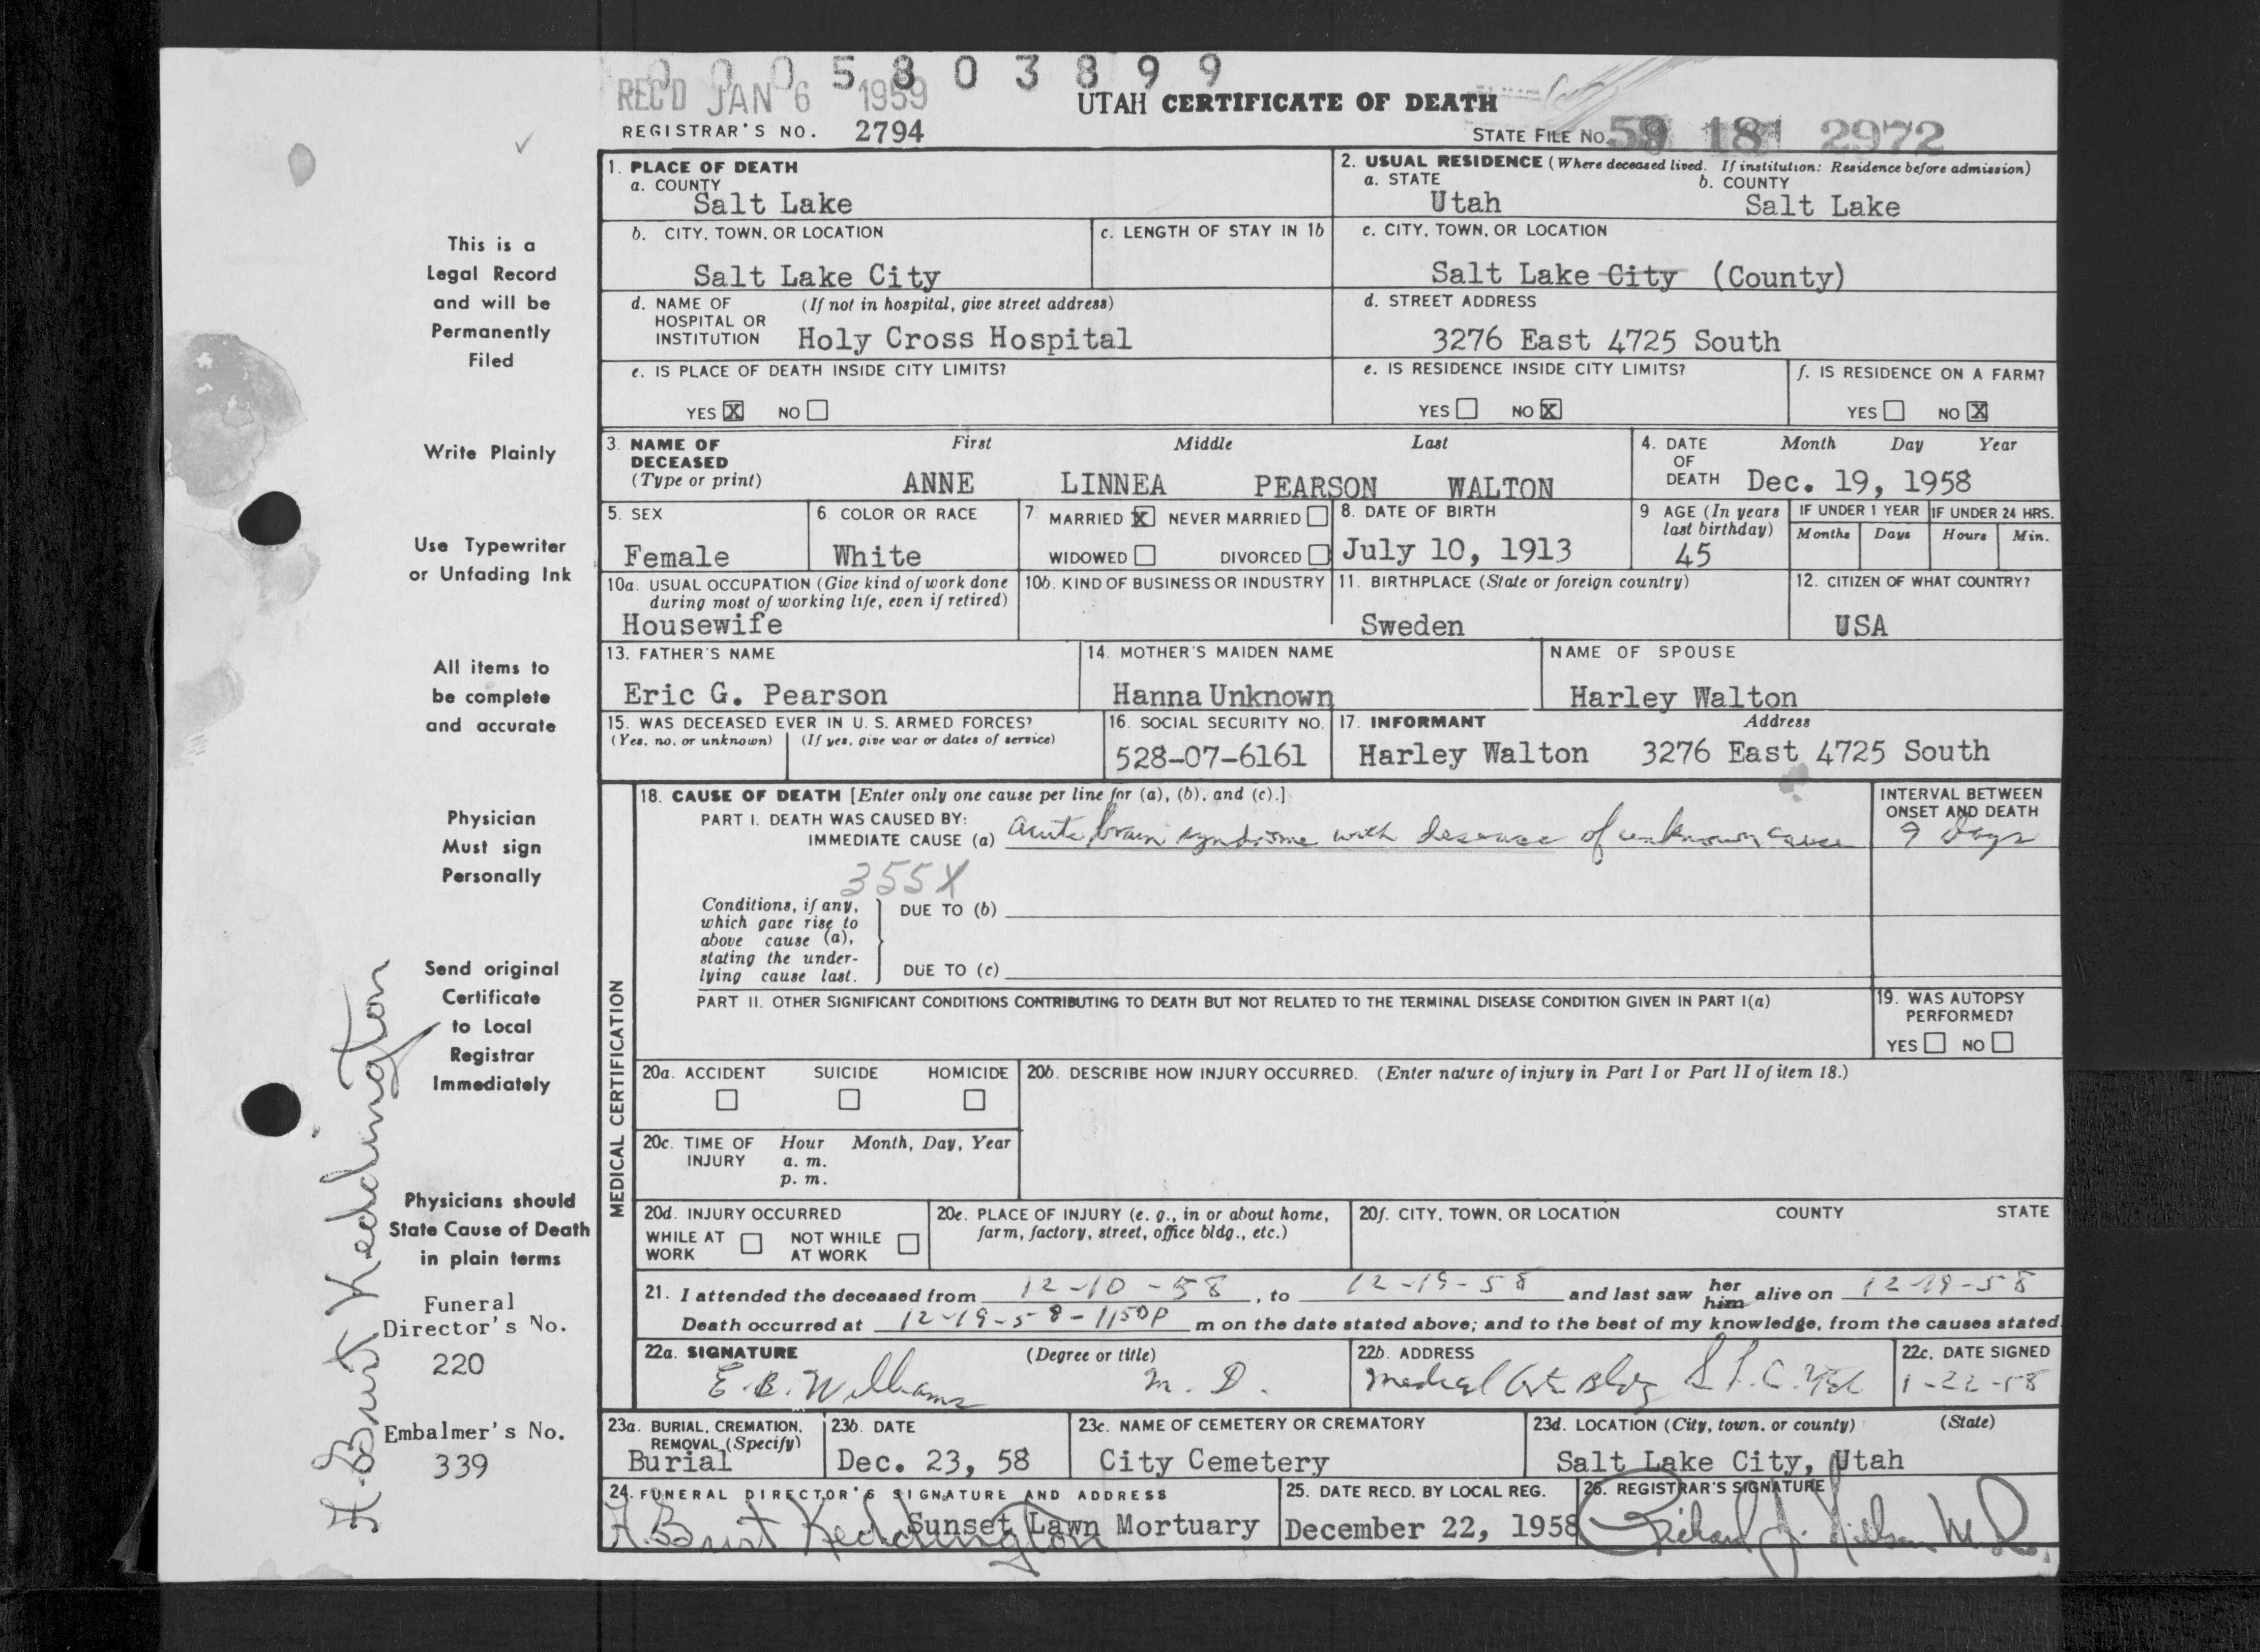 0005803899
REC'D JAN 6 1959
UTAH CERTIFICATE OF DEATH
REGISTRAR'S NO. 2794
STATE FILE NO. 59 181 2972
This is a
Legal Record
and will be
Permanently
Filed
Write Plainly
Use Typewriter
or Unfading Ink
All items to
be complete
and accurate
Physician
Must sign
Personally
Send original
Certificate
to Local
Registrar
Immediately
Physicians should
State Cause of Death
in plain terms
Funeral
Director's No.
220
Embalmer's No.
339
A. Burt Keddington
1. PLACE OF DEATH
a. COUNTY
Salt Lake
2. USUAL RESIDENCE (Where deceased lived. If institution: Residence before admission)
a. STATE b. COUNTY
Utah Salt Lake
b. CITY, TOWN, OR LOCATION
Salt Lake City
c. LENGTH OF STAY IN 1b
c. CITY, TOWN, OR LOCATION
Salt Lake City (County)
d. NAME OF (If not in hospital, give street address)
HOSPITAL OR
INSTITUTION Holy Cross Hospital
d. STREET ADDRESS
3276 East 4725 South
e. IS PLACE OF DEATH INSIDE CITY LIMITS?
YES X NO
e. IS RESIDENCE INSIDE CITY LIMITS?
YES NO X
f. IS RESIDENCE ON A FARM?
YES NO X
3. NAME OF First Middle Last
DECEASED
(Type or print) ANNE LINNEA PEARSON WALTON
4. DATE Month Day Year
OF
DEATH Dec. 19, 1958
5. SEX
Female
6. COLOR OR RACE
White
7. MARRIED X NEVER MARRIED
WIDOWED DIVORCED
8. DATE OF BIRTH
July 10, 1913
9 AGE (In years
last birthday)
45
IF UNDER 1 YEAR IF UNDER 24 HRS.
Months Days Hours Min.
10a. USUAL OCCUPATION (Give kind of work done
during most of working life, even if retired)
Housewife
10b. KIND OF BUSINESS OR INDUSTRY
11. BIRTHPLACE (State or foreign country)
Sweden
12. CITIZEN OF WHAT COUNTRY?
USA
13. FATHER'S NAME
Eric G. Pearson
14. MOTHER'S MAIDEN NAME
Hanna Unknown
NAME OF SPOUSE
Harley Walton
15. WAS DECEASED EVER IN U. S. ARMED FORCES?
(Yes, no, or unknown) (If yes, give war or dates of service)
16. SOCIAL SECURITY NO.
528-07-6161
17. INFORMANT Address
Harley Walton 3276 East 4725 South
MEDICAL CERTIFICATION
18. CAUSE OF DEATH [Enter only one cause per line for (a), (b), and (c).]
PART I. DEATH WAS CAUSED BY:
IMMEDIATE CAUSE (a) Acute brain syndrome with disease of unknown cause
INTERVAL BETWEEN
ONSET AND DEATH
9 days
355X
Conditions, if any,
which gave rise to
above cause (a),
stating the under-
lying cause last.
DUE TO (b)
DUE TO (c)
PART II. OTHER SIGNIFICANT CONDITIONS CONTRIBUTING TO DEATH BUT NOT RELATED TO THE TERMINAL DISEASE CONDITION GIVEN IN PART I(a)
19. WAS AUTOPSY
PERFORMED?
YES NO
20a. ACCIDENT SUICIDE HOMICIDE
20b. DESCRIBE HOW INJURY OCCURRED. (Enter nature of injury in Part I or Part II of item 18.)
20c. TIME OF Hour Month, Day, Year
INJURY a. m.
p. m.
20d. INJURY OCCURRED
WHILE AT NOT WHILE
WORK AT WORK
20e. PLACE OF INJURY (e. g., in or about home,
farm, factory, street, office bldg., etc.)
20f. CITY, TOWN, OR LOCATION COUNTY STATE
21. I attended the deceased from 12-10-58, to 12-19-58 and last saw her him alive on 12-19-58
Death occurred at 12-19-58-1150P m on the date stated above; and to the best of my knowledge, from the causes stated
22a. SIGNATURE (Degree or title)
E. B. Williams M. D.
22b. ADDRESS
Medical Arts Bldg S L C.
22c. DATE SIGNED
1-22-58
23a. BURIAL, CREMATION,
REMOVAL (Specify)
Burial
23b. DATE
Dec. 23, 58
23c. NAME OF CEMETERY OR CREMATORY
City Cemetery
23d. LOCATION (City, town, or county) (State)
Salt Lake City, Utah
24. FUNERAL DIRECTOR'S SIGNATURE AND ADDRESS
A. Burt Keddington Sunset Lawn Mortuary
25. DATE RECD. BY LOCAL REG.
December 22, 1958
26. REGISTRAR'S SIGNATURE
Richard J. Nielsen M.D.